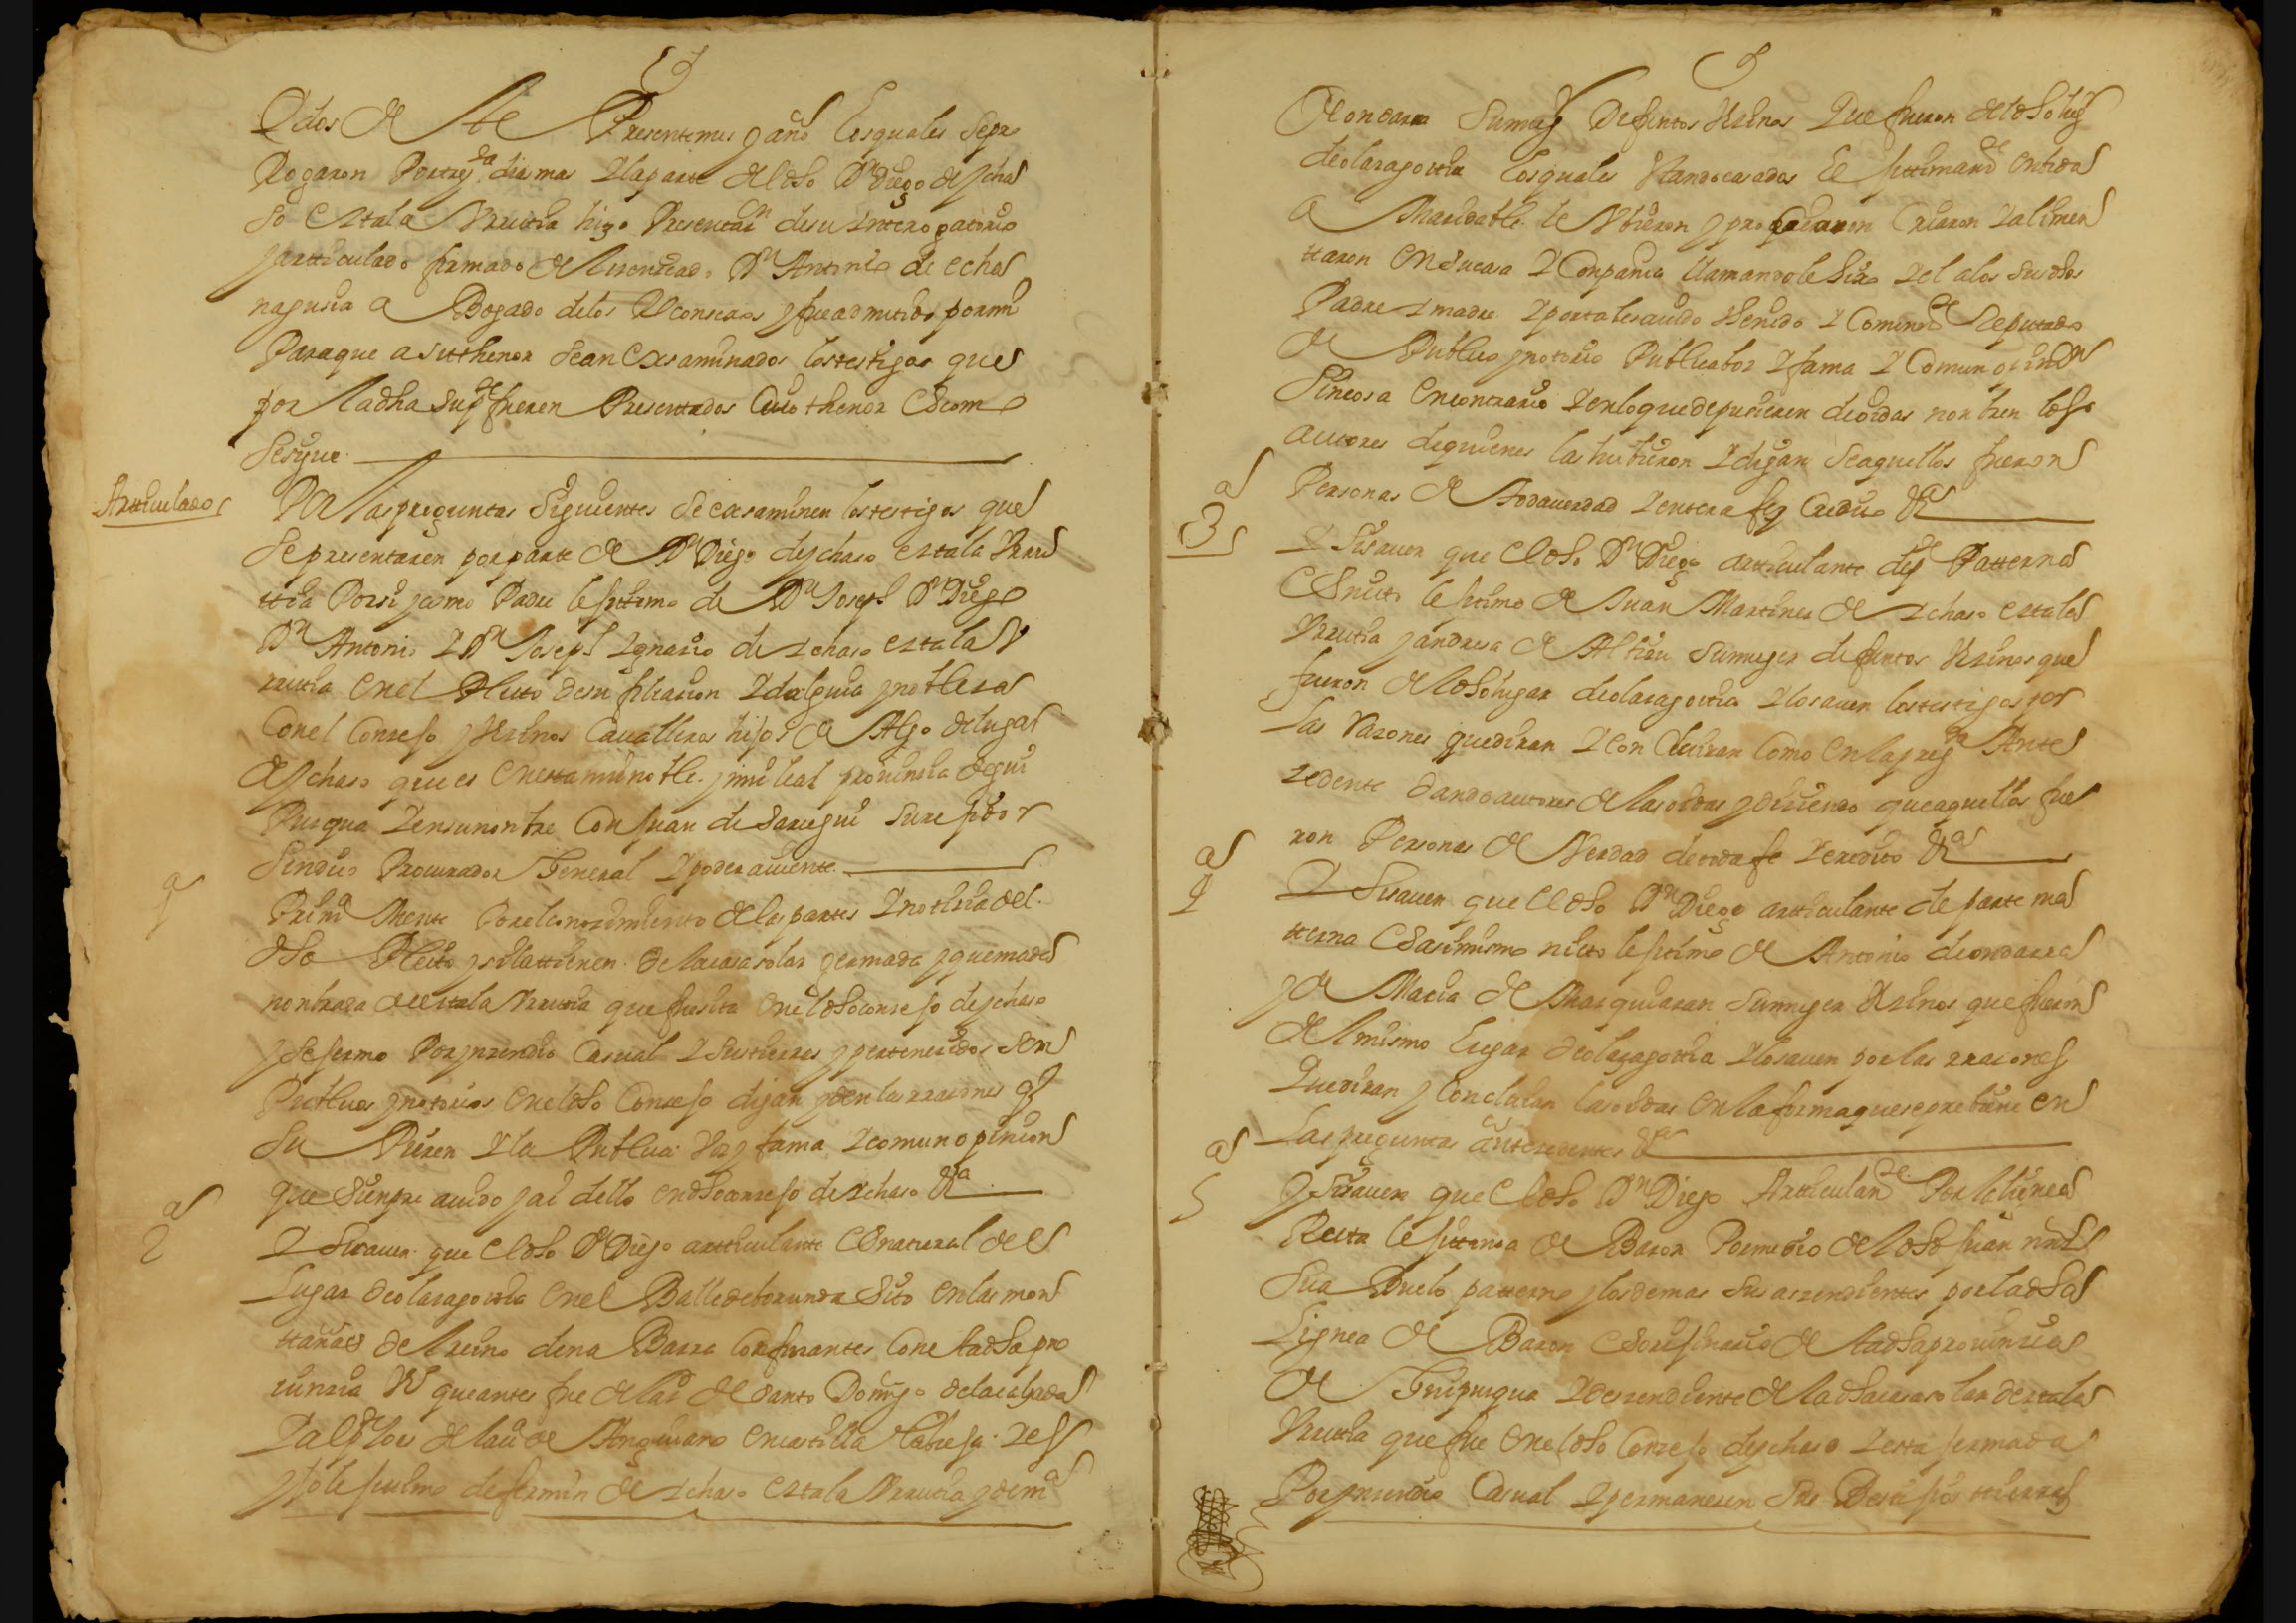 Ydos de este Presentemes y año los quales se pro
Rogaron Por tres dias mas Y la parte del dho Dn Diego de ycha
so Estala Vrrutia hizo Presentaon de su Interogatorio
y artticulado firmado del licenciado Dn Antonio de echa
nagusia a Bogado de los Rs consexos y fue admitido por mi
Para que a su thenor sean Exsaminados los testigos que
por la dha su pte fueren Presentados Cuio thenor Es como
se sigue
Artticulado
Por las preguntas siguientes se exsaminen los testigos que
se presentaren por parte de Dn Diego de ychaso estala Vrru
ttia Por si y como Padre lexitimo de Dn Joseph Dn Diego
Dn Antonio Y Dn Joseph Ygnacio de ychaso estala V
rrutia en el Pleito de su filiacion Y dalguia y nobleza
Con el Consejo y Vecinos Cavalleros hijos de Algo del lugar
de ychaso que es en esta mui noble y mui leal provincia de gui
Puzqua Y en su nombre Con Juan de Sarregui su rexidor
Sindico Procurador General Y poder aviente
1a
Primera Mente Por el conocimiento de las partes Y noticia del
dho Pleito y si la ttienen de la casa solar y armada y quemada
nombrada de estala Vrrutia que fue sita en el dho consejo de ychaso
y se fermo Por ynzendio Casual Y sus tierras y pertenecidos son
Publicos y notorios en el dho Consejo digan y den las rrazones q
su Pieren Y la Publica Voz y fama Y comun opinion
que siempre avido y ai dello en dho consejo de ychaso &a
2a
Y Si saven que el dho Dn Diego artticulante Es natural de el
Lugar de olazagottia en el Balle de borunda sito en las mon
ttañas del reino de na Barra Confinantes Con esta dha pro
vincia Vº que antes fue de la de Santo Domingo de la calzada
Y alcalde de la de Anguiano en castilla la bieja Y es
yjo lexitimo de fermin de ychaso estala Vrrutia y de ma
de ondarra su muger Difuntos Vecinos Que fueron del dho lugar
de olazagottia los quales estando casados lexittimamente en vida
a Maridable le Vbieron y procrearon Criaron Y alimen
ttaron en su casa Y Conpania llamandole hixo Y el a los susodhos
Padre Y madre Y por tal es avido thenido Y Comunmte Reputado
de Publico y notorio Publica boz Y fama Y Comun opinion
sin cosa en contrario Y en lo que depusieren de oidas nonbren los
autores de quienes las hubieron Y digan si aquellos fueron
Personas de toda verdad Y entera fee y Credito &a
3a
Y Si saven que el dho Dn Diego artticulante de pte Patterna
Es nieto lexitimo de Juan Martines de ychaso estala
Vrrutia y andresa de Altzu su muger difuntos Vecinos que
fueron del dho lugar de olazagottia Y lo saven los testigos por
las Razones que diran Y Concluiran Como en la pregta Ante
zedente dando autores de las oidas y diziendo que aquellos fue
ron Personas de Verdad de toda fe Y credito &a
4a
Y Si saven que el dho Dn Diego artticulante de parte ma
tterna Es asimismo nieto lexitimo de Antonio de ondarra
y de Maria de Marquiaran su muger Vecinos que fueron
del mismo lugar de olazagottia Y lo saven por las rrazones
Que diran y Concluian las oidas en la forma que se previene en
Las preguntas antezedentes &a
5a
Y Si saven que el dho Dn Diego Artticulante Por la linea
Recta lexittima de Baron Por medio del dho Juan mrz
su a Buelo patterno y los demas sus aszendientes por la dha
Lignea de Baron Es orixinario de la dha provinzia
de Guipuzqua Y deszendiente de la dha casa solar de estala
Vrrutia que fue en el dho Consejo de ychaso Y esta fermada
Por ynzendio Casual Y permanesen sus Desipos ttierras